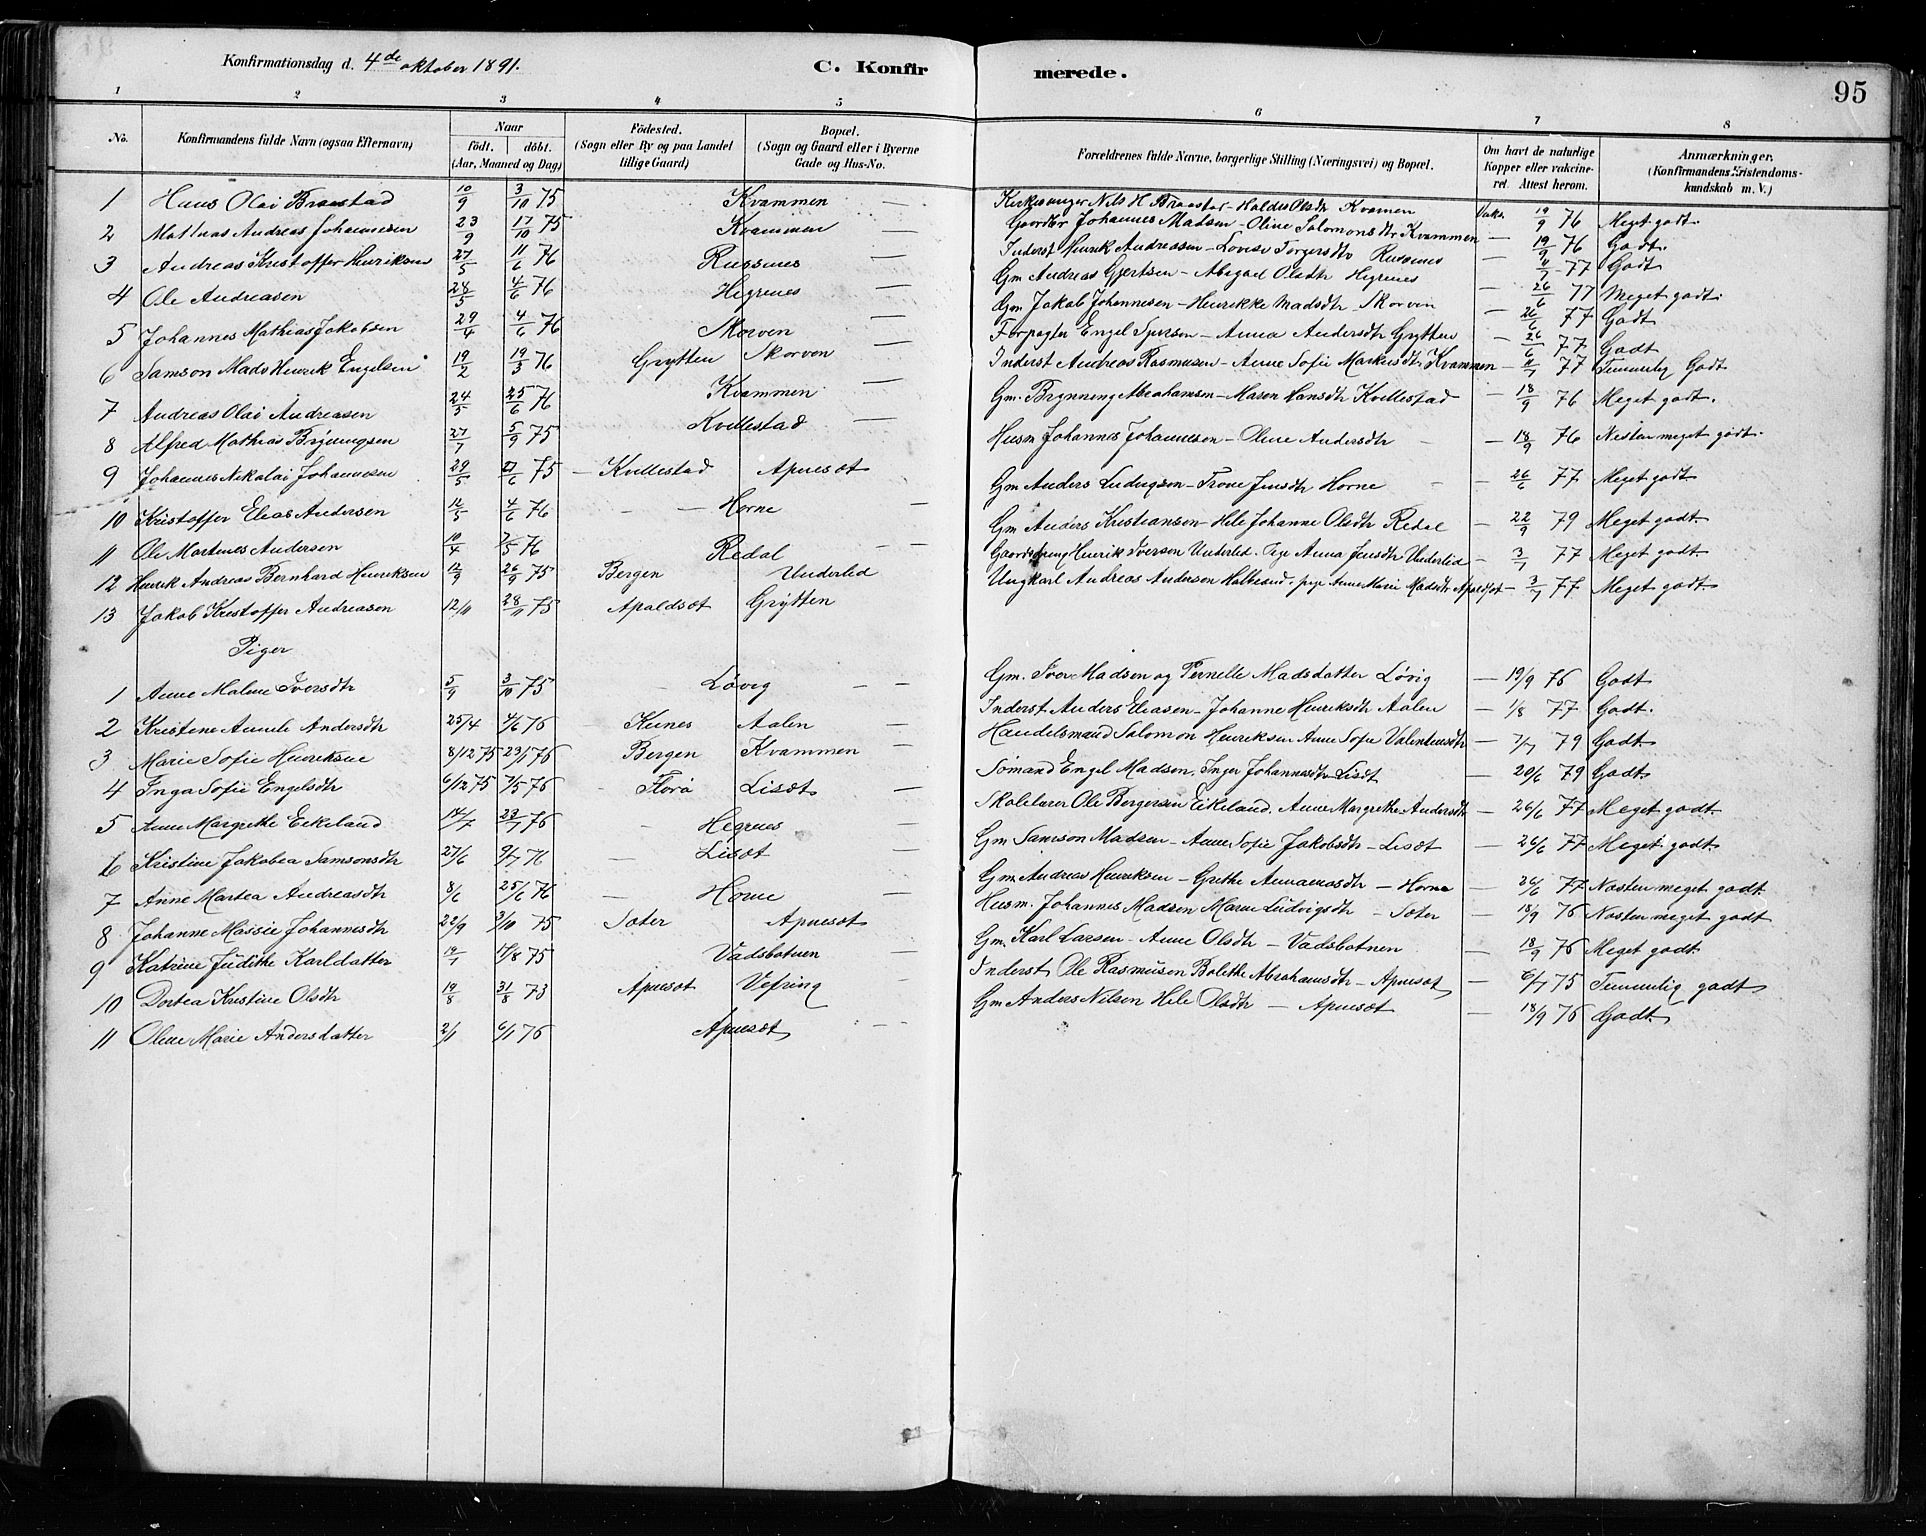 Konfirmationsdag d. 4de oktober 1891.
C. Konfirmerede.
95
1 2 3 4 5 6 7 8
No. Konfirmandens fulde Navn (ogsaa Efternavn) Naar født. døbt. (Aar, Maaned og Dag) Fødested. (Sogn eller By og paa Landet tillige Gaard) Bopæl. (Sogn og Gaard eller i Byerne Gade og Hus-No. Forældrenes fulde Navne, borgerlige Stilling (Næringsvei) og Bopæl. Om havt de naturlige Kopper eller vakcineret. Attest herom. Anmærkninger. (Konfirmandens Kristendomskundskab m. V.)
1 Hans Olai Braestad 10/9 3/10 75 Kvammen — Kirkesanger Nils H. Braestad - Kvamen Vaks. 19/9 76 Meget godt.
2 Mathias Andreas Johannesen 23/9 17/10 75 Kvammen — Gaardbr Johannes Madsen - Oline Salomonsdtr Kvammen — 19/9 76 Godt.
3 Andreas Kristoffer Henriksen 27/5 11/6 76 Russenes — Inderst Henrik Andreasen - Lovise Torgersdtr Russenes — 11/7 77 Godt
4 Ole Andreasen 28/5 4/6 76 Hegrenes — Gm Andreas Gjertsen - Abigael Olsdtr Hegrenes — 26/6 77 Meget godt.
5 Johannes Mathias Jakobsen 29/4 4/6 76 Skorven — Gm. Jakob Johannesen - Henrikke Madsdtr Skorven — 26/6 77 Godt
6 Samson Mads Henrik Engelsen 19/2 19/3 76 Grytten Skorven — Forpagter Engel Iversen - Anna Andersdtr Grytten — 26/6 77 Godt
7 Andreas Olai Andreasen 24/5 25/6 76 Kvammen — Inderst Andreas Rasmusen - Anne Sofie Markusdtr Kvammen — 11/7 77 Temmelig Godt
8 Alfred Mathias Bryningsen 27/7 5/9 75 Kvillestad — Gm. Brynning Abrahamsen - Maren Hansdtr Kvillestad — 18/9 76 Meget godt.
9 Johannes Nikolai Johannesen 29/5 27/6 75 — Kvillestad Apnesæt Husm Johannes Johannesen - Oline Andersdtr — 18/9 76 Nesten meget godt.
10 Kristoffer Elias Andersen 12/5 4/6 76 — Horne — Gm Anders Ludvigsen - Trone Jensdtr Horne — 26/6 77 Meget godt
11 Ole Martines Andersen 10/4 7/5 76 Redal — Gm Anders Kristiansen - Hele Johanne Olsdtr Redal — 22/9 79 Meget godt.
12 Henrik Andreas Bernhard Henriksen 12/9 26/9 75 Bergen Underlid Gaardsdreng Henrik Iversen Underlid. Pige Anna Jensdtr Underlid — 3/7 77 Meget godt.
13 Jakob Kristoffer Andreasen 12/11 28/11 75 Apaldsæt Grytten Ungkarl Andreas Andersen, pige Anne Marie Madsdtr Apaldsæt — 3/7 77 Meget godt.
Piger
1 Anne Malene Iversdtr 5/9 3/10 75 — Løvig — Gm. Iver Madsen og Pernelle Madsdatter Løvig — 19/9 76 Godt
2 Kristene Amalie Andersdtr 25/4 4/6 76 Kinnes Aalen Inderst Anders Eliasen - Johanne Henriksdtr Aalen — 1/8 77 Godt.
3 Marie Sofie Henriksen 8/12 75 23/1 76 Bergen Kvammen — Handelsmand Salomon Henriksen Anne Sofie Valentinsdtr — 7/7 79 Godt.
4 Inga Sofie Engelsdtr 6/12 75 7/5 76 — Florø Lisæt — Sømand Engel Madsen. Inger Johannesdtr Lisæt — 20/6 79 Godt.
5 Anne Margrethe Eikeland 14/7 23/7 76 — Hegrenes — Skolelærer Ole Bergersen Eikeland. Anne Margrethe Andersdtr — 26/6 77 Meget godt.
6 Kristine Jakobea Samsonsdtr 27/6 9/7 76 — Lisæt — Gm Samson Madsen - Anne Sofie Jakobsdtr - Lisæt — 26/6 77 Meget godt.
7 Anne Martea Andreasdtr 8/6 25/6 76 — Horne — Gm Andreas Henriksen - Grethe - Horne — 26/6 77 Næsten meget godt
8 Johanne Maisie Johannesdtr 22/9 3/10 75 Sæter Apnesæt Husm. Johannes Madsen Maren Ludvigsdtr - Sæter — 18/9 76 Næsten meget godt
9 Katrine Judithe Karldatter 19/7 15/8 75 Vadsbotnen — Gm. Karl Larsen - Anne Olsdtr - Vadsbotnen — 18/9 76 Meget godt.
10 Dortea Kristine Olsdtr 19/8 31/8 73 Apnesæt Vefring — Inderst Ole Rasmusen Bolethe Abrahamsdtr - Apnesæt — 6/7 75 Temmelig godt
11 Oline Marie Andersdatter 2/1 6/1 76 Apnesæt — Gm Anders Nilsen Hele Olsdtr - Apnesæt — 18/9 76 Godt.